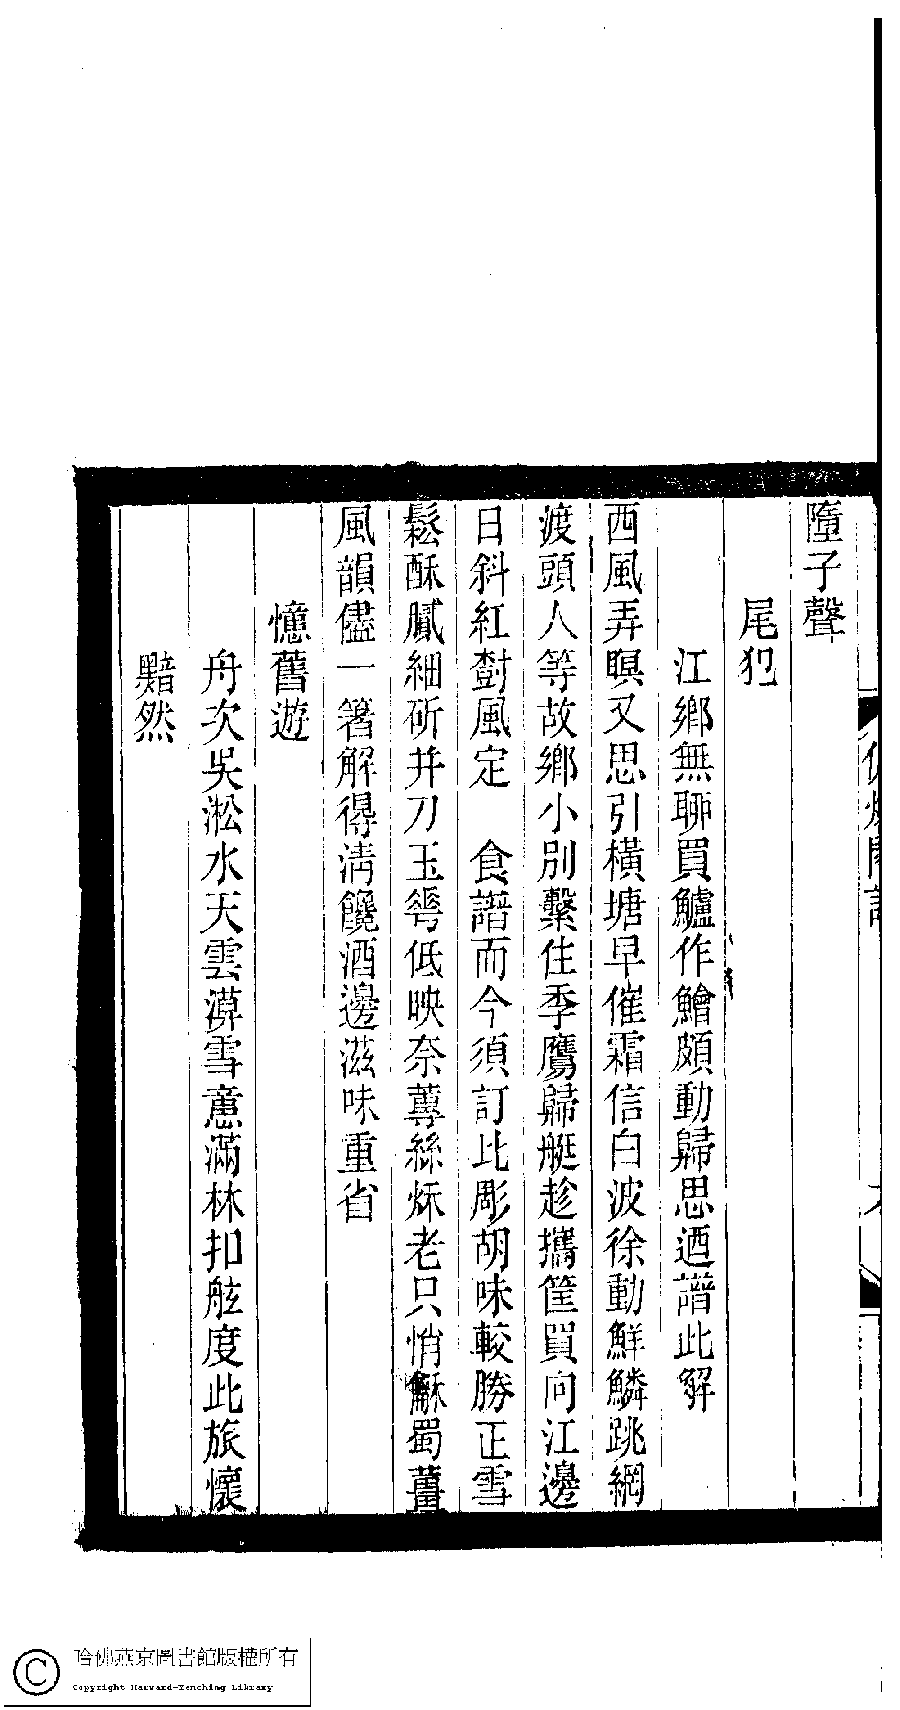 墮子聲
尾犯
江鄉無聊買鱸作鱠頗動歸思迺譜此解
西風弄暝又思引橫塘早催霜信白波徐動鮮鱗跳網
渡頭人等故鄉小別繫住季鷹歸艇趁攜筐買向江邊
日斜紅對風定　食譜而今須訂比彫胡味較勝正雪
鬆酥膩細斫并刀玉簪低映奈蓴絲秌老只悄龢蜀薑
風韻儘一箸解得淸饞酒邊滋味重省
憶舊遊
舟次吳淞水天雲漭雪意滿林扣舷度此旅懷
黯然
哈佛燕京圖書館版權所有
Copyright Harvard-Yenching Library